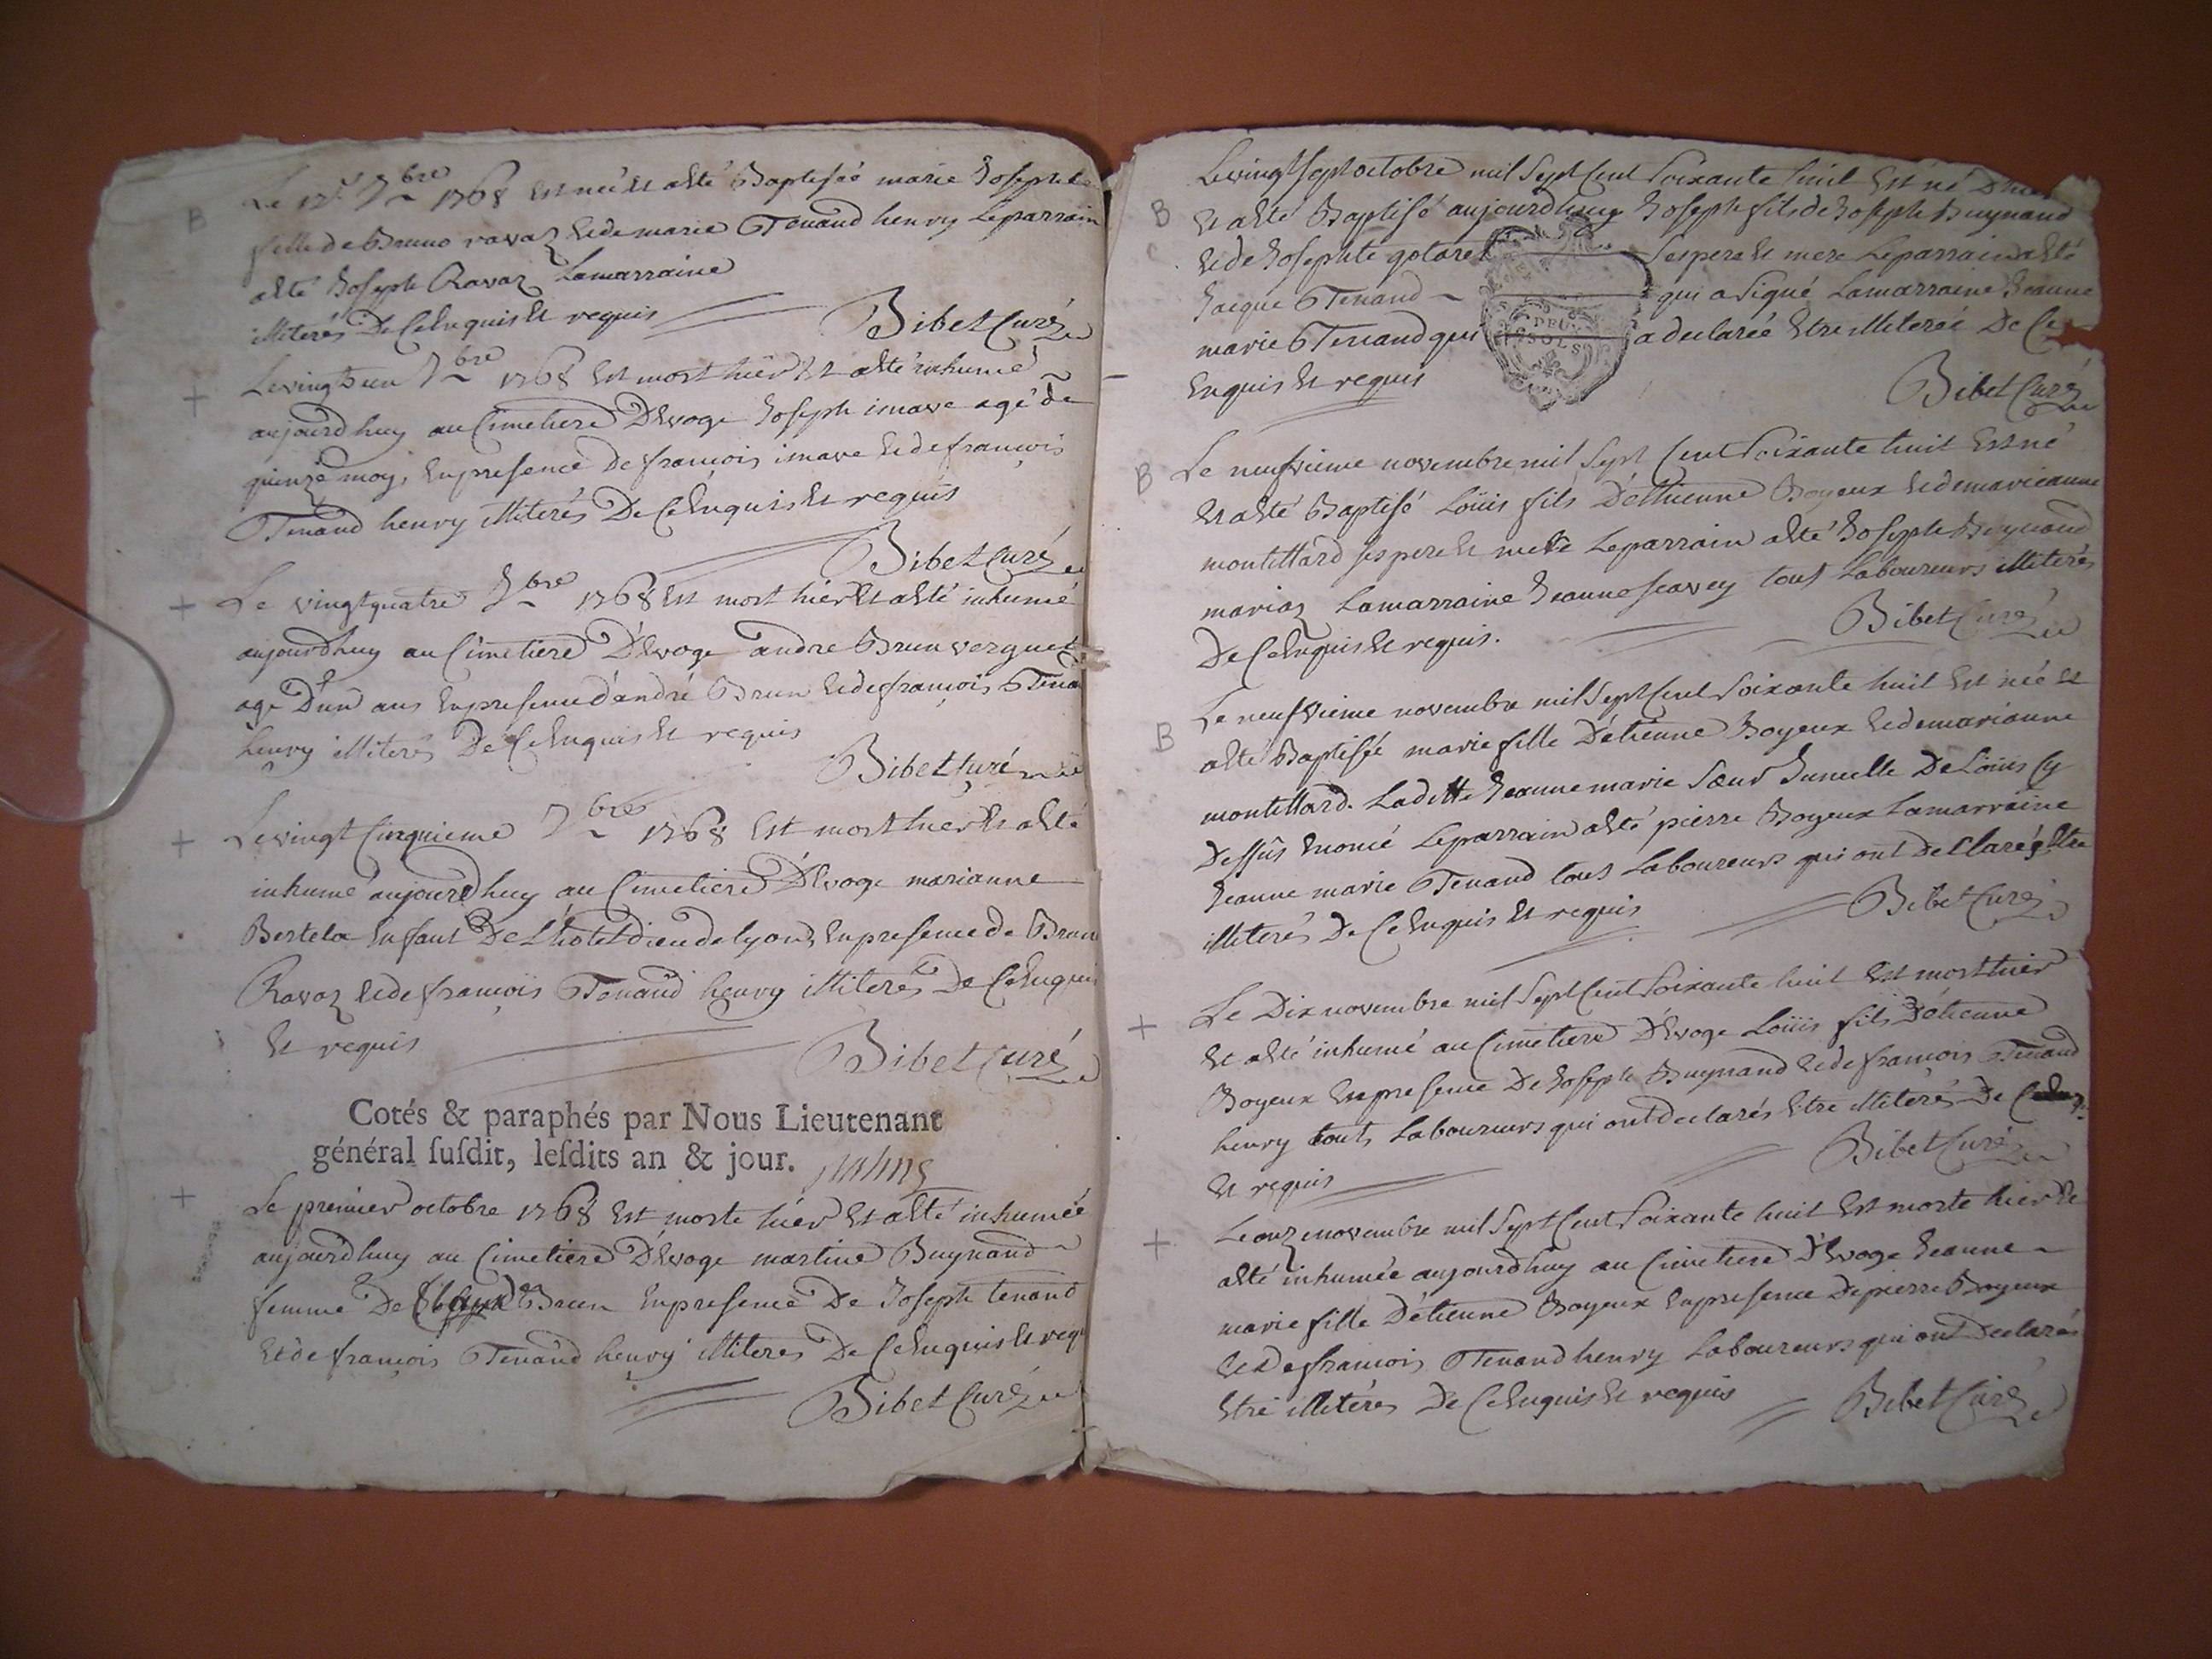 B
Le 17e 7bre 1768 Est née Et a Eté Baptisée marie Josephte
fille de Bruno ravaz Et de marie Tenand henry Le parrain
a Eté Joseph Ravaz La marraine
illiterés De Ce Enquis Et requis Bibet Curé
+
Le vingt un 7bre 1768 Est mort hier Et a Eté inhumé
aujourdhuy au Cimetiere D'Evoge Joseph imave agé de
quinze moy, En presence De françois imave Et de françois
Tenand henry illiterés De Ce Enquis Et requis
Bibet Curé
+
Le vingt quatre 7bre 1768 Est mort hier Et a Eté inhumé
aujourdhuy au Cimetiere D'Evoge andre Brun verguet
agé D'un ans En presence d'andré Brun Et de françois Tena
henry illiterés De Ce Enquis Et requis
Bibet Curé
+
Le vingt Cinquieme 7bre 1768 Est mort hier Et a Eté
inhumé aujourdhuy au Cimetiere D'Evoge marianne
Bertela Enfant De L'hotel dieu de lyon, En presence de Brun
Ravaz Et de françois Tenand henry illiterés De Ce Enquis
Et requis
Bibet Curé
Cotés & paraphés par Nous Lieutenant
général ſuſdit, leſdits an & jour.
+
Le premier octobre 1768 Est morte hier Et a Eté inhumée
aujourdhuy au Cimetiere D'Evoge martine Buynand
femme De Claude Brun En presence De Joseph tenand
Et de françois Tenand henry illiteres De Ce Enquis Et requ
Bibet Curé
Le vingt sept octobre mil Sept Cent Soixante huit Est né D'hier
B
Et a Eté Baptisé aujourdhuy Joseph fils de Joseph Buynand
Et de Josephte golaret Ses pere Et mere Le parrain a Eté
Jacque Tenand qui a Signé La marraine Jeanne
marie Tenand qui a declarée Etre illiterée De Ce
DEUX SOLS
Enquis Et requis
Bibet Curé
B
Le neufvieme novembre mil Sept Cent Soixante huit Est né
Et a Eté Baptisé Loüis fils D'Ethienne Boyeux Et de marieanne
montillard Ses pere Et mere Le parrain a Eté Joseph Buynand
mariaz La marraine Jeanne Scavey tous Laboureurs illiterés
De Ce Enquis Et requis.
Bibet Curé
B
Le neufvieme novembre mil Sept Cent Soixante huit Est née Et
a Eté Baptisée marie fille D'etienne Boyeux Et de marianne
montillard. Laditte Jeanne marie Sœur Jumelle De Loüis Cy
Dessûs Enoncé Le parrain a Eté pierre Boyeux La marraine
Jeanne marie Tenand tous Laboureurs qui ont Declarés Etre
illiterés De Ce Enquis Et requis
Bibet Curé
+
Le Dix novembre mil Sept Cent Soixante huit Est mort hier
Et a Eté inhumé au Cimetiere D'Evoge Loüis fils D'etienne
Boyeux En presence De Joseph Buynand Et de françois Tenand
henry tous Laboureurs qui ont declarés Etre illiterés De Ce
Et requis
Bibet Curé
+
Le onze novembre mil Sept Cent Soixante huit Est morte hier Et
a Eté inhumée aujourdhuy au Cimetiere D'Evoge Jeanne
marie fille D'etienne Boyeux En presence De pierre Boyeux
Et De françois Tenand henry Laboureurs qui ont Declarés
Etre illiterés De Ce Enquis Et requis Bibet Curé